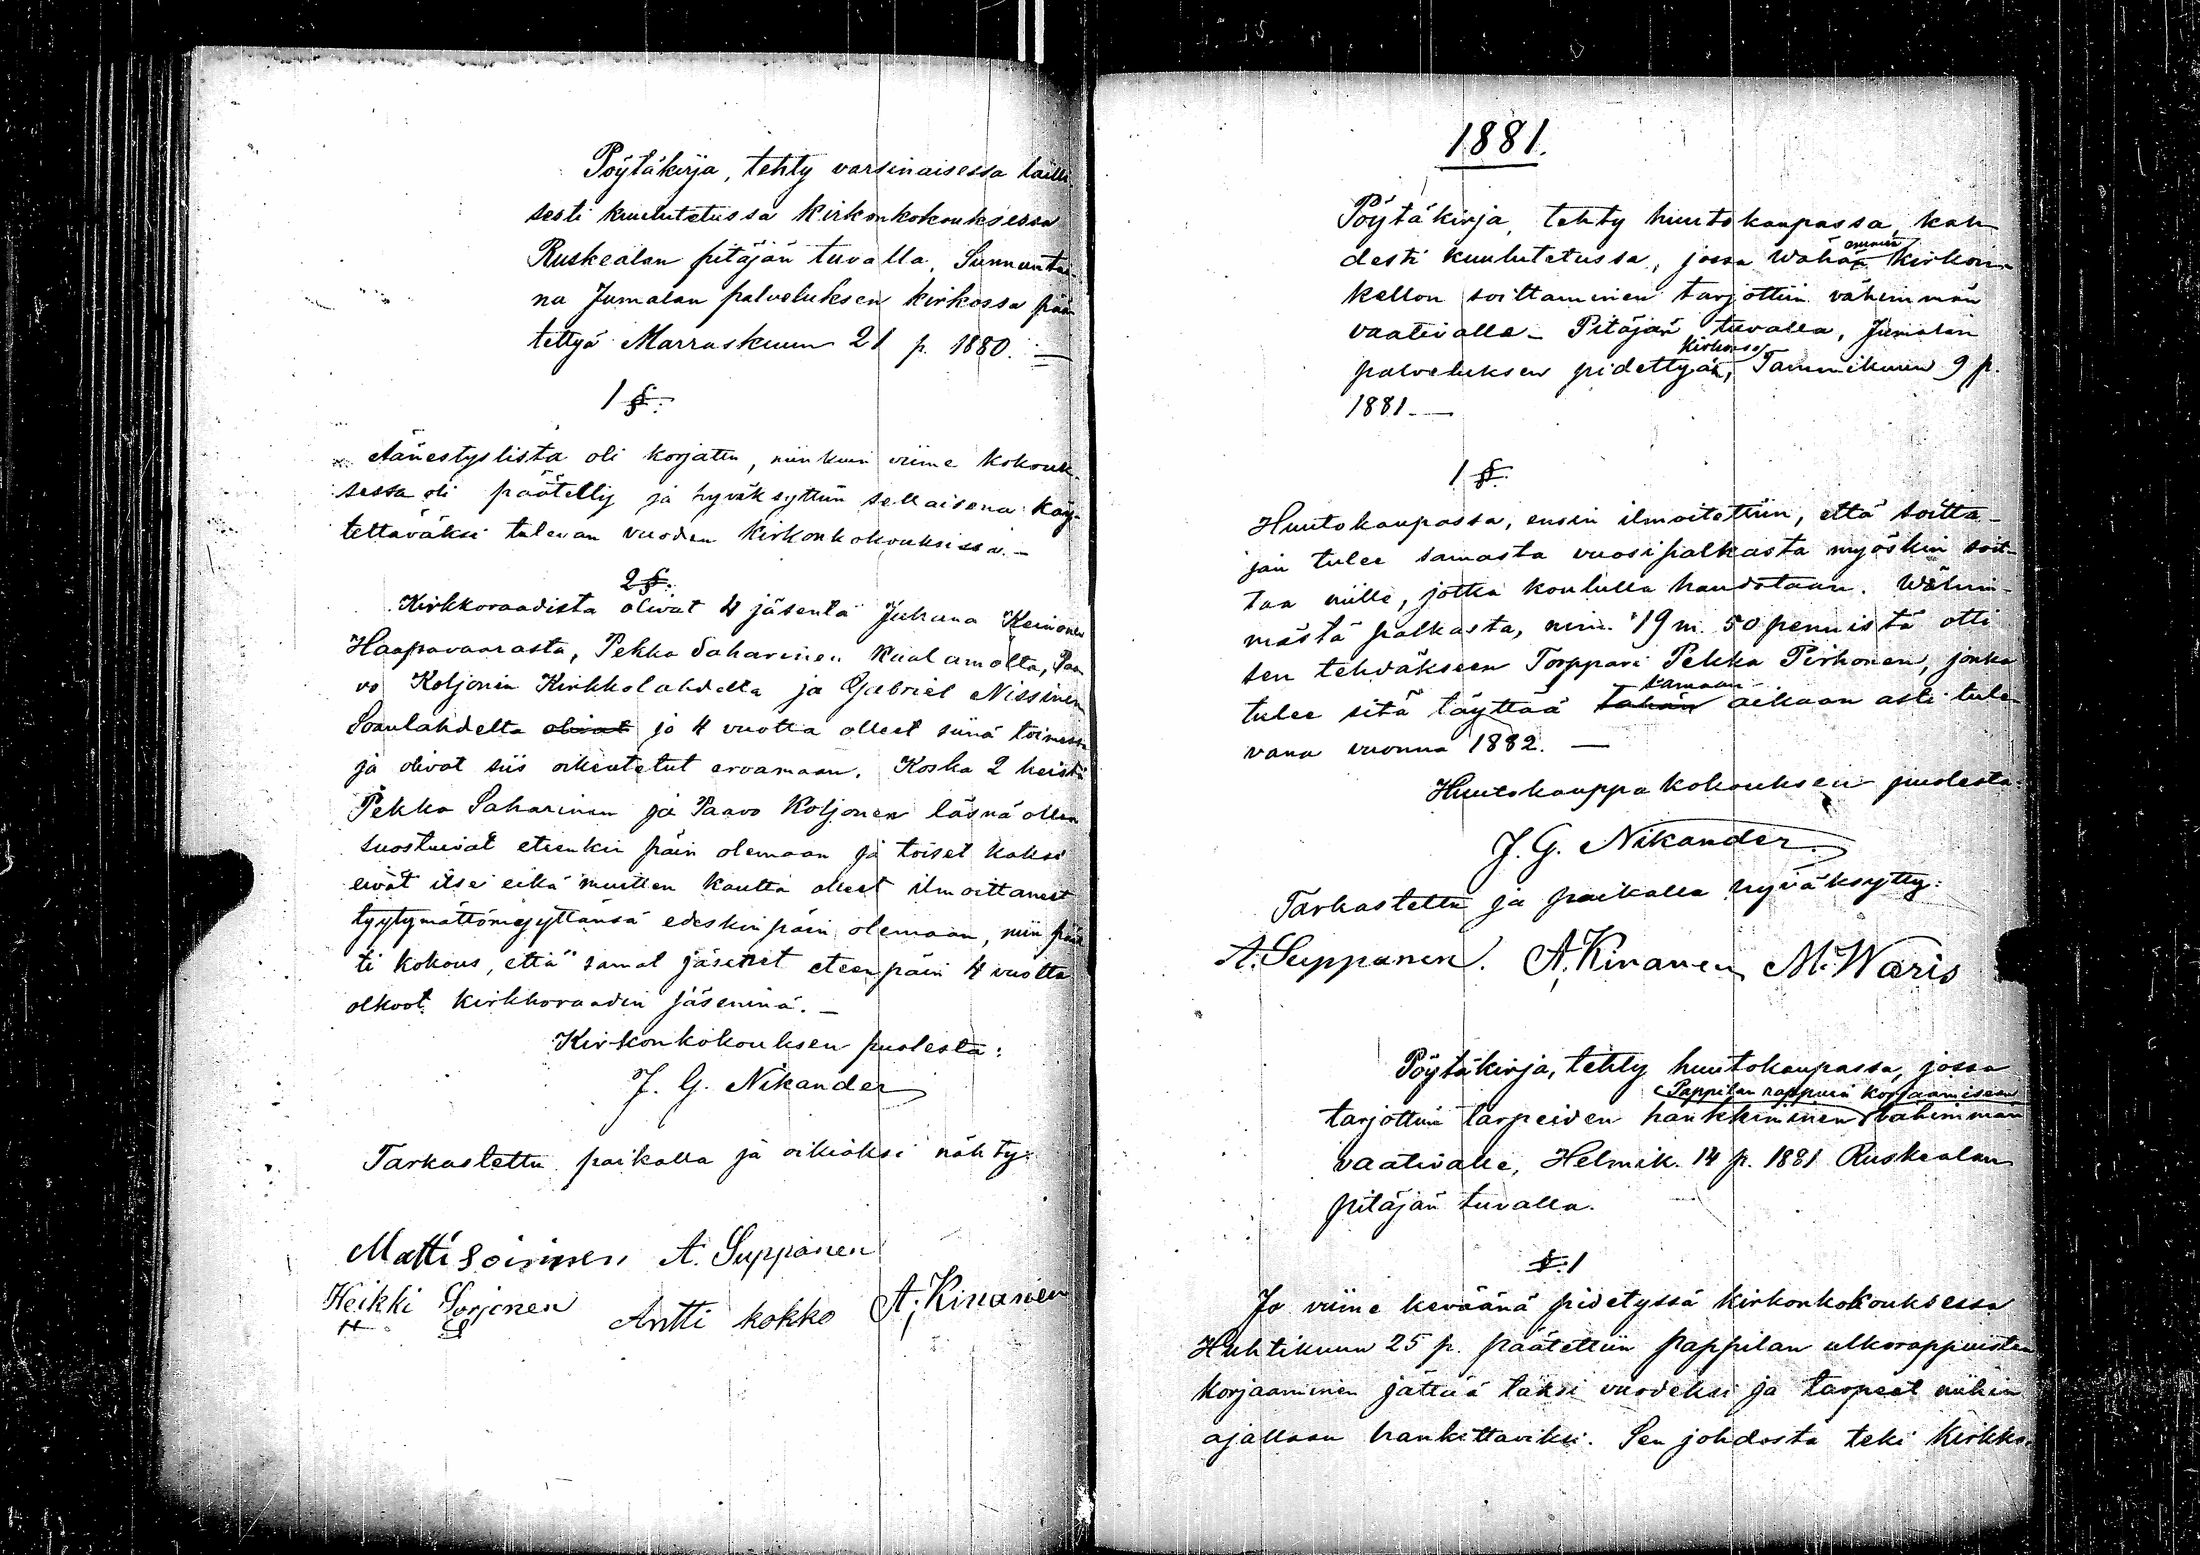 Pöytäkirja, tehty varsinaisessa lailli-
sesti kuulutetussa kirkonkokouksessa
Ruskealan pitäjän tuvalla, Sunnuntai-
na Jumalan palveluksen kirkossa pää-
tettyä Marraskuun 21 p. 1880. —
1 §.
Äänestyslista oli korjattu, niinkuin viime kokouk-
sessa oli päätetty ja hyväksyttiin sellaisena käy-
tettäväksi tulevan vuoden kirkonkokouksissa. —
2 §.
Kirkkoraadista olivat 4 jäsentä Juhana Keinonen
Haapavaarasta, Pekka Saharinen Kaalamolta, Paa-
vo Koljonen Kirkkolahdelta ja Gabriel Nissinen
Soanlahdelta olivat jo 4 vuotta olleet siinä toimessa
ja olivat siis oikeutetut eroamaan. Koska 2 heistä
Pekka Saharinen ja Paavo Koljonen läsnä ollen
suostuivat eteenkin päin olemaan ja toiset kaksi
eivät itse eikä muitten kautta olleet ilmoittaneet
tyytymättömyyttänsä edeskinpäin olemaan, niin päät-
ti kokous, että samat jäsenet eteenpäin 4 vuotta
olkoot kirkkoraadin jäseninä. —
Kirkonkokouksen puolesta:
J. G. Nikander
Tarkastettu paikalla ja oikiaksi nähty:
Matti Soininen A. Suppanen
Heikki Sorjonen Antti kokko A. Kinanen
H S
1881.
Pöytäkirja, tehty huutokaupassa, kah-
desti kuulutetussa, jossa Wähän kirkon-
kellon soittaminen tarjottiin vähimmän
vaativalle – Pitäjän tuvalla, Jumalan
kirkossa
palveluksen pidettyä, Tammikuun 9 p.
1881. —
1 §.
Huutokaupassa, ensin ilmoitettiin, että soitta-
jan tulee samasta vuosipalkasta myöskin soit-
taa niille, jotka koululla haudataan. Wähim-
mästä palkasta, nim. 19 m. 50 pennistä otti
sen tehdäkseen Torppari Pekka Pirhonen, jonka
samaan
tulee sitä täyttää tähän aikaan asti tule-
vana vuonna 1882. —
Huutokauppakokouksen puolesta:
J. G. Nikander.
Tarkastettu ja paikalla hyväksytty:
A. Suppanen. A. Kinanen M. Waris
Pöytäkirja, tehty huutokaupassa, jossa
Pappilan rappuin korjaamiseen
tarjottiin tarpeiden hankkiminen vähimmän
vaativalle, Helmik. 14 p. 1881 Ruskealan
pitäjän tuvalla.
§. 1
Jo viime keväänä pidetyssä kirkonkokouksessa
Huhtikuun 25 p. päätettiin pappilan ulkorappuisten
korjaaminen jättää täksi vuodeksi ja tarpeet niihin
ajallaan hankittaviksi. Sen johdosta teki kirkko-